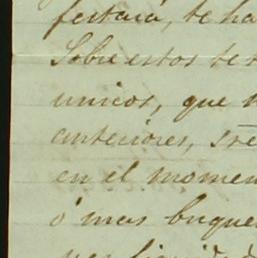 festará, te ha
Sobre estos te
unicos, que
anteriores,
en el momen
ó mas buque